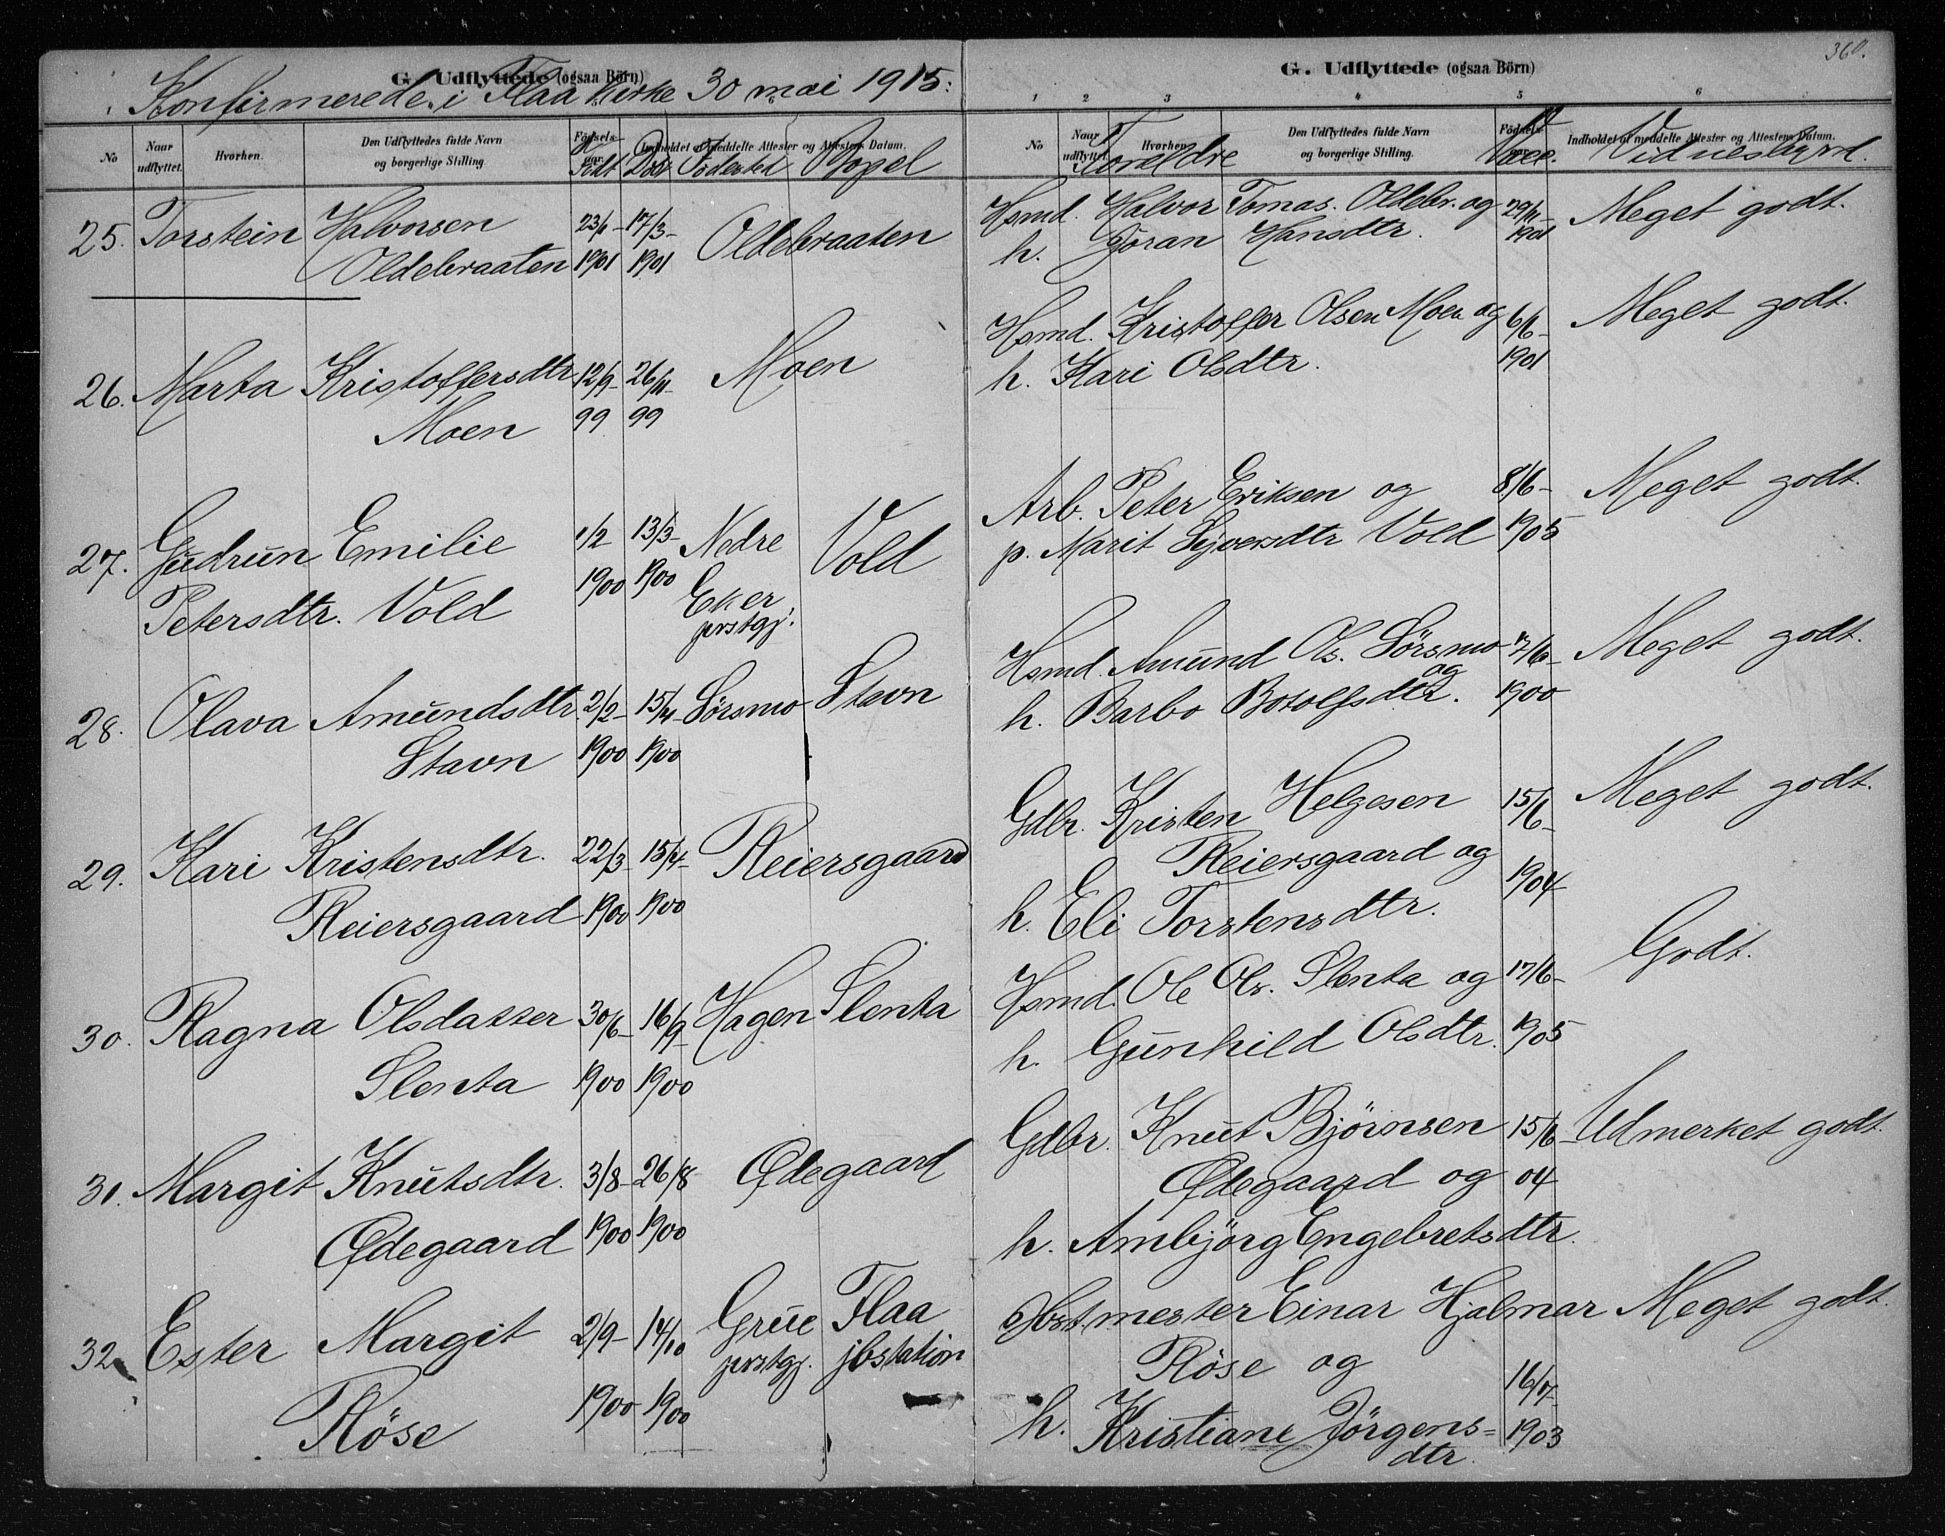 G. Udflyttede (ogsaa Börn)
Konfirmerede i Flaa kirke 30 mai 1915.
No
Naar udflyttet.
Hvorhen.
Den Udflyttedes fulde Navn og borgerlige Stilling.
Födsels-aar.
Indholdet af meddelte Attester og Attestens Datum.
Födt Döbt Födested Bopel
25. Torstein Halvorsen 23/1- 17/3- Oldebraaten
Oldebraaten 1901 1901
26. Marta Kristoffersdtr 12/9- 26/11- Moen
Moen 99 99
27. Gudrun Emilie 1/2 13/3 Nedre Vold
Petersdtr. Vold 1900 1900 Eker
prstgj.
28. Olava Amundsdtr. 2/2- 15/4- Sørsmo Stavn
Stavn 1900 1900
29. Kari Kristensdtr. 22/3- 15/4- Reiersgaard
Reiersgaard 1900 1900
30. Ragna Olsdatter 30/6- 16/9- Hagen Slenta
Slenta 1900 1900
31. Margit Knutsdtr. 3/8- 26/8 Ødegaard
Ødegaard 1900 1900
32. Ester Margit 2/9- 14/10 Grue Flaa
prstgj. jbstation
Röse 1900 1900
360.
G. Udflyttede (ogsaa Börn)
1 2 3 4 5 6
No
Naar udflyttet.
Hvorhen.
Den Udflyttedes fulde Navn og borgerlige Stilling.
Födsels-
Indholdet af meddelte Attester og Attestens Datum.
Foreldre Vacc. Vidnesbyrd.
Hsmd. Halvor Tomas. Oldebr. og 29/11- Meget godt.
h. Joran Hansdtr. 1901
Hsmd. Kristoffer Olsen Moen og 6/6- Meget godt.
h. Kari Olsdtr. 1901
Arb. Peter Eriksen og 8/6- Meget godt.
p. Marit Syversdtr Vold 1905
Hsmd. Amund Ols. Sørsmo og /6- Meget godt.
h. Barbo Botolfsdtr. 1900
Gdbr. Kristen Helgesen 15/6- Meget godt.
Reiersgaard og
h. Eli Torstensdtr. 1904
Hsmd. Ole Ols. Slenta og 17/6- Godt.
h. Gunhild Olsdtr. 1905
Gdbr. Knut Bjørnsen 15/6- Udmerket godt.
Ødegaard og 04
h. Ambjörg Engebretsdtr.
mester Einar Hjalmar Meget godt.
Röse og 16/7-
h. Kristiane Jörgens= 1903
dtr.